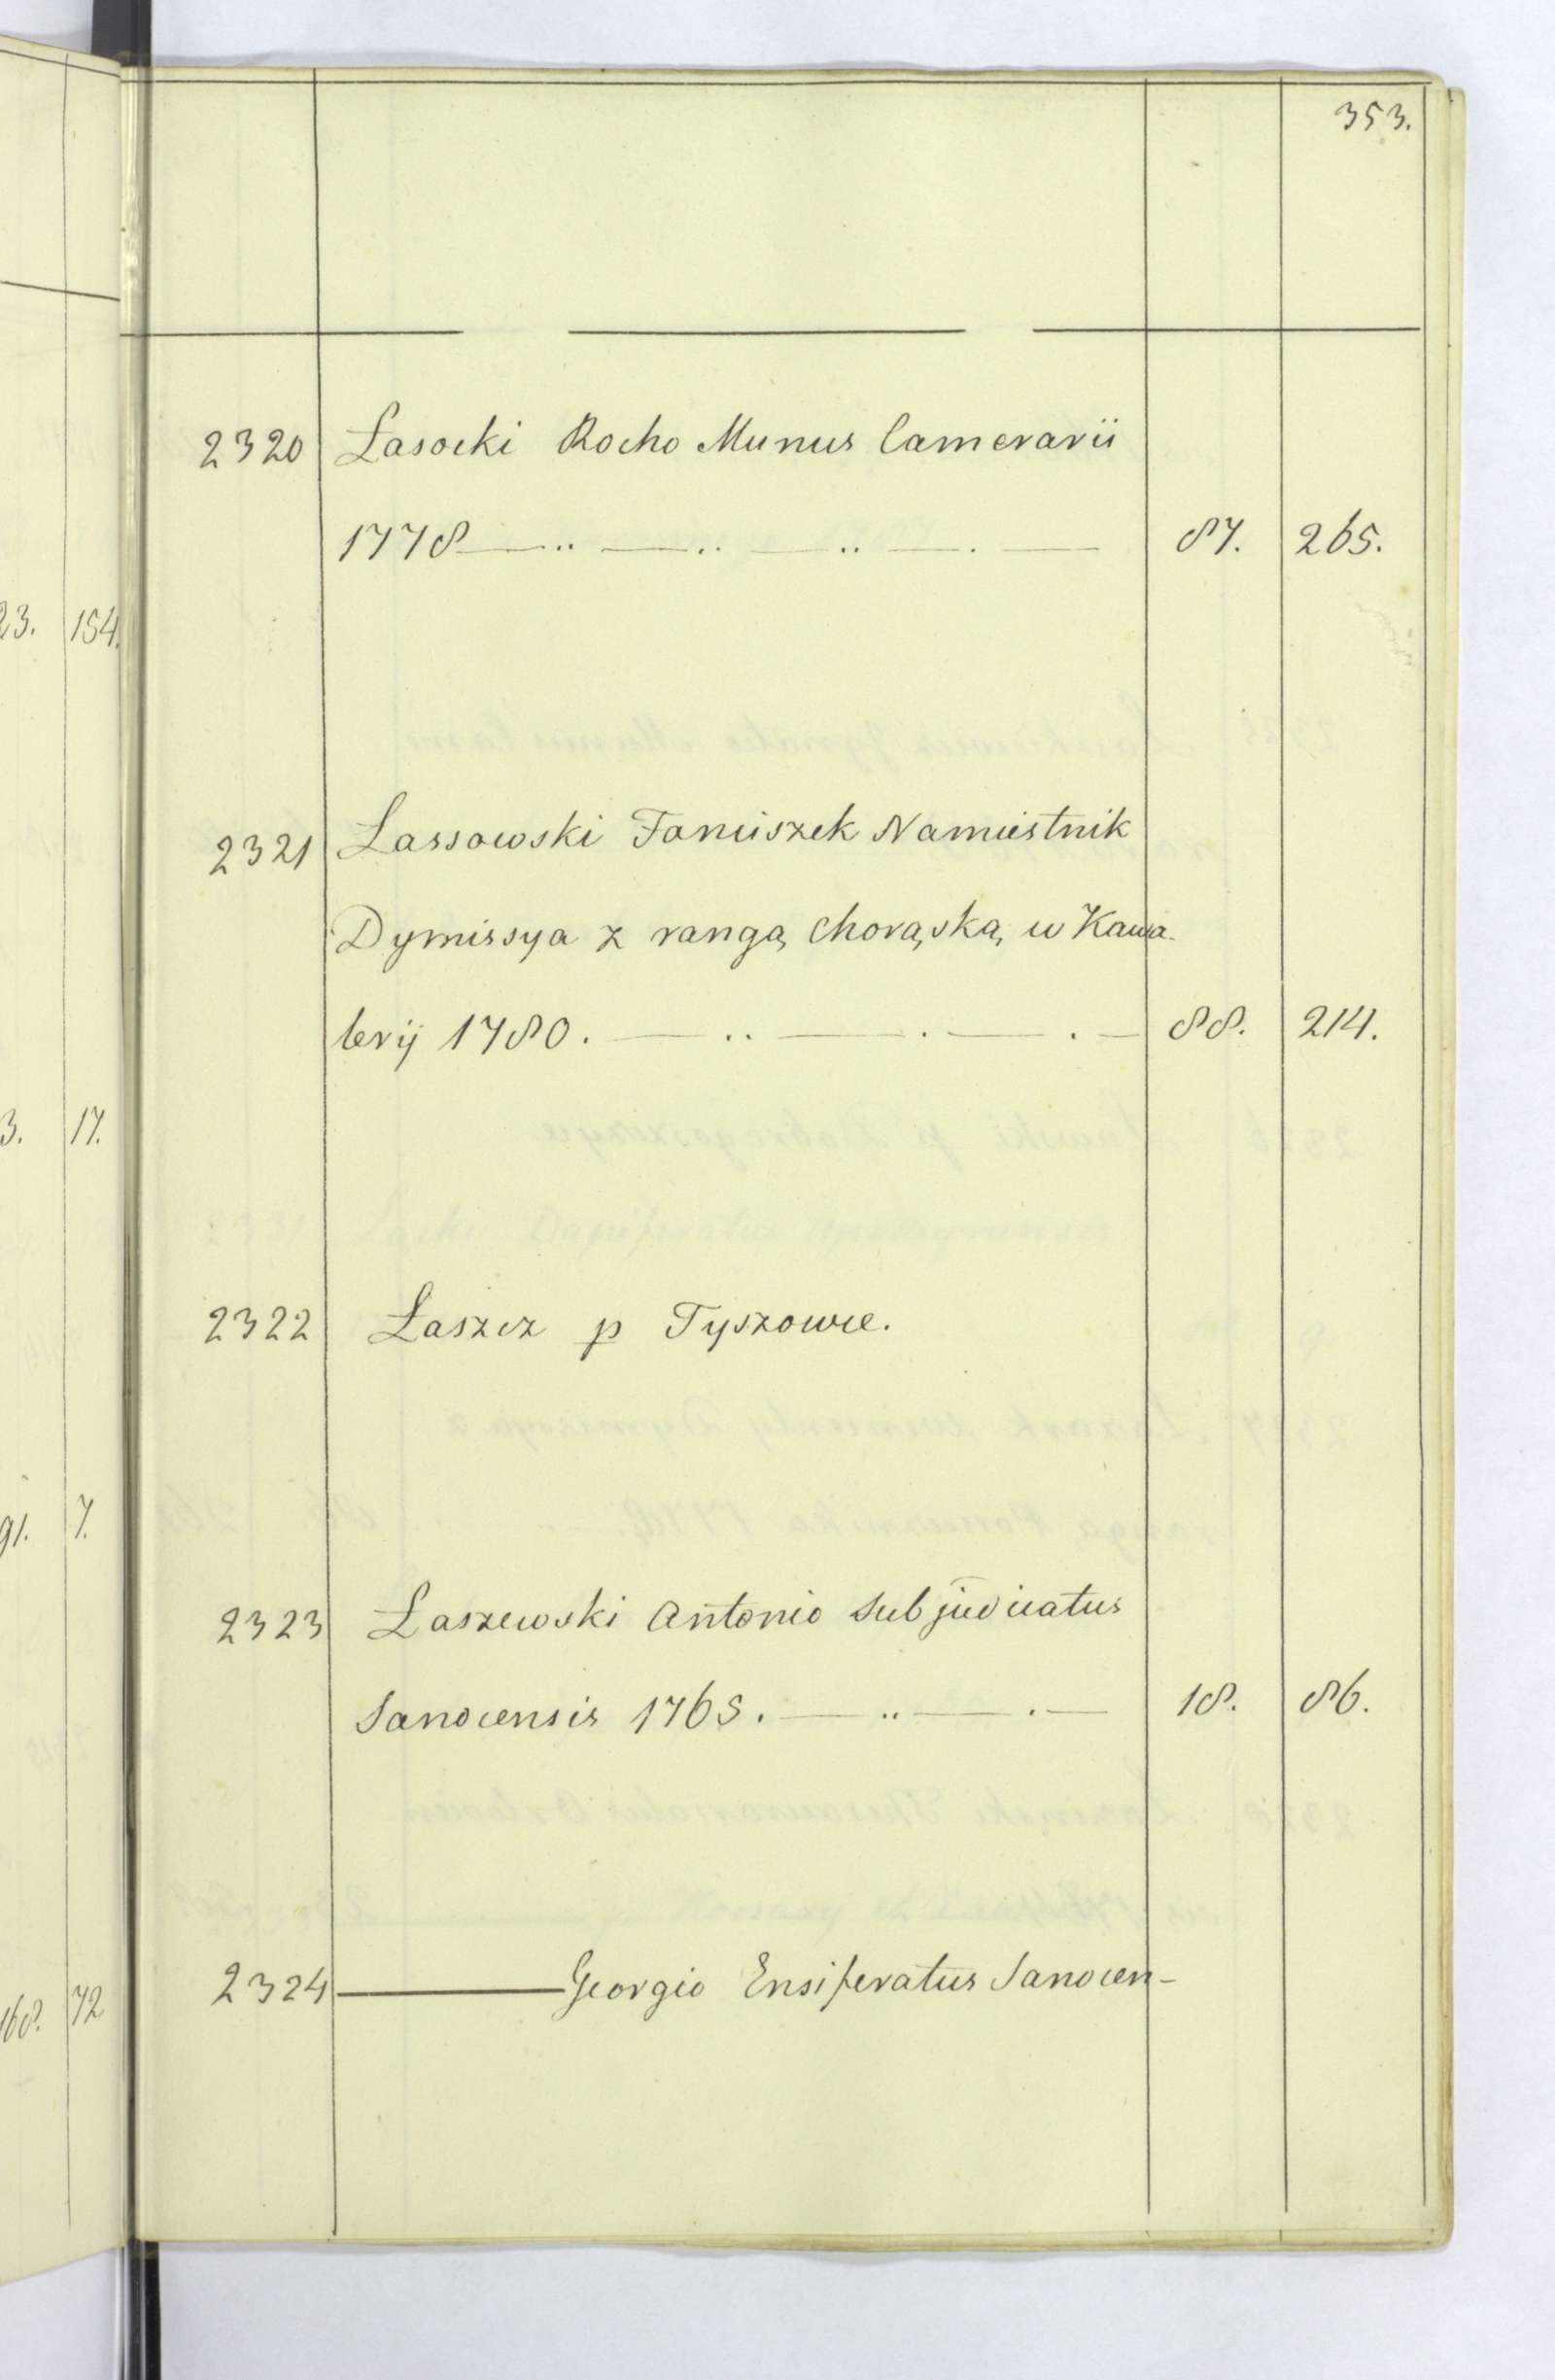 353.
2320 Łasocki Rocho Munus Camerarii
1778 — .. — .. — .. — . — 87. 265.
2321 Łassowski Franciszek Namiestnik
Dymissya z rangą chorąską w Kawa-
leryj 1780. — .. — . — . — 88. 214.
2322 Łaszcz p Tyszowce.
2323 Łaszewski Antonio Subjudicatus
Sanocensis 1765. — .. — . — 18. 86.
2324 ——— Georgio Ensiferatus Sanocen-
23. 154.
3. 17.
91. 7.
168. 72